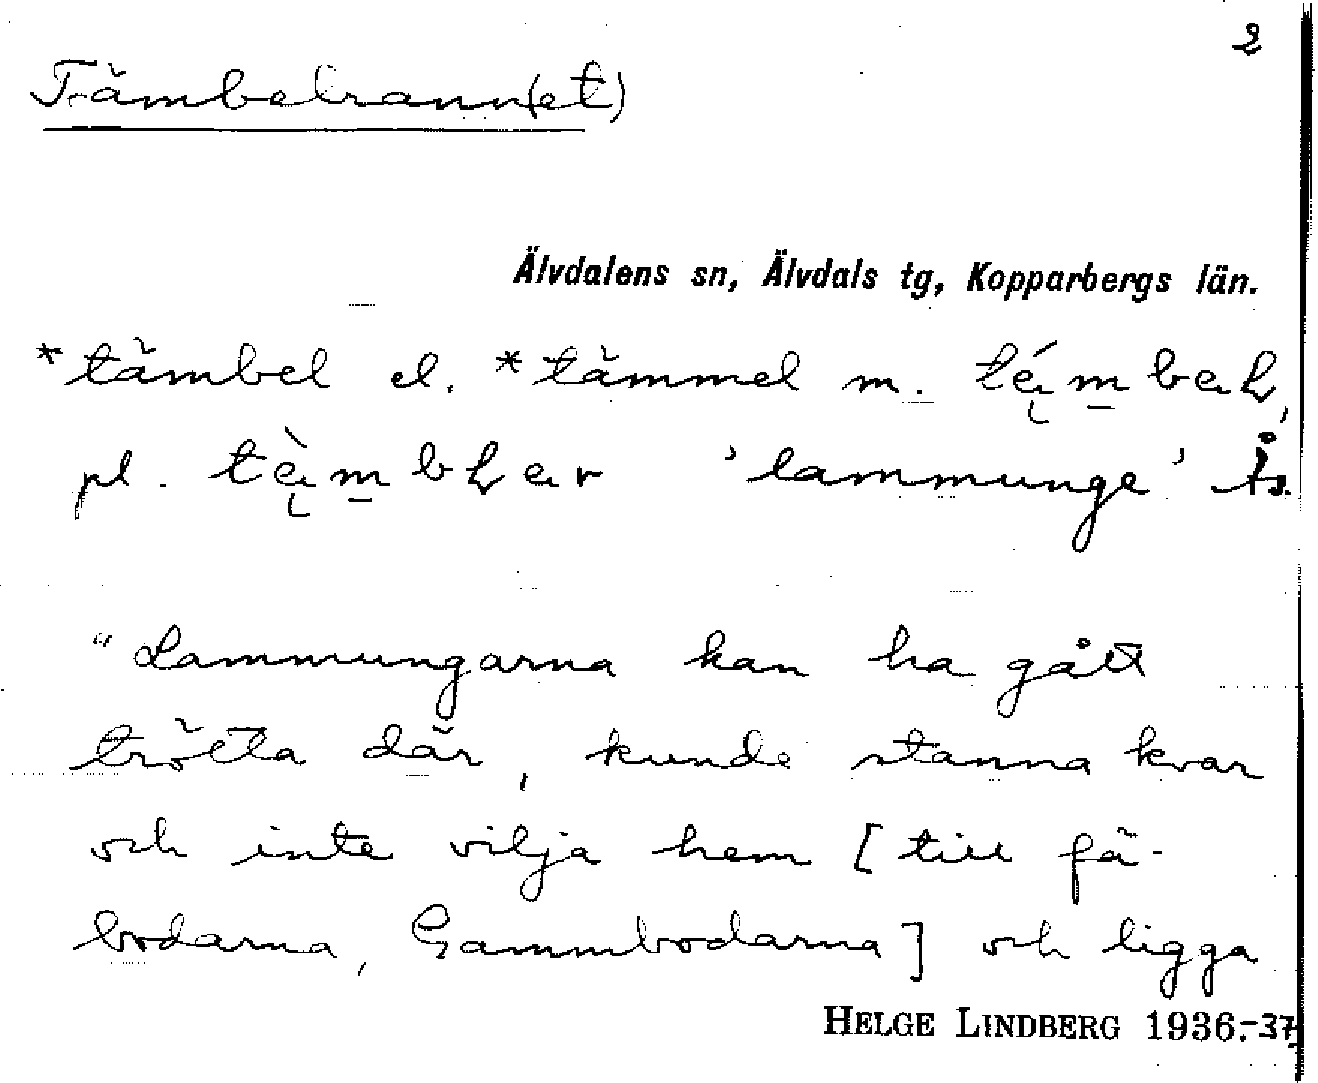 2
Tämbelrann(et)
Älvdalens sn, Älvdals tg, Kopparbergs län.
*tämbel el. *tämmel m.
pl. 'lammunge' Ås.
"Lammungarna kan ha gått
trötta där, kunde stanna kvar
och inte vilja hem [till fä-
bodarna, Gammbodarna] och ligga
HELGE LINDBERG 1936.-37